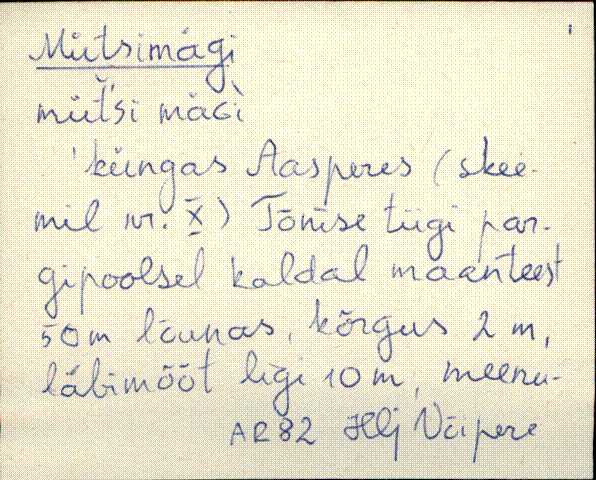 Mütsimägi
mütši mäGì
'küngas Aasperes (skee-
mil nr. X) Tõnise tiigi par-
gipoolsel kaldal maanteest
50m lõunas, kõrgus 2 m,
läbimõõt ligi 10 m, meenu-
AR82 Hlj Võipere